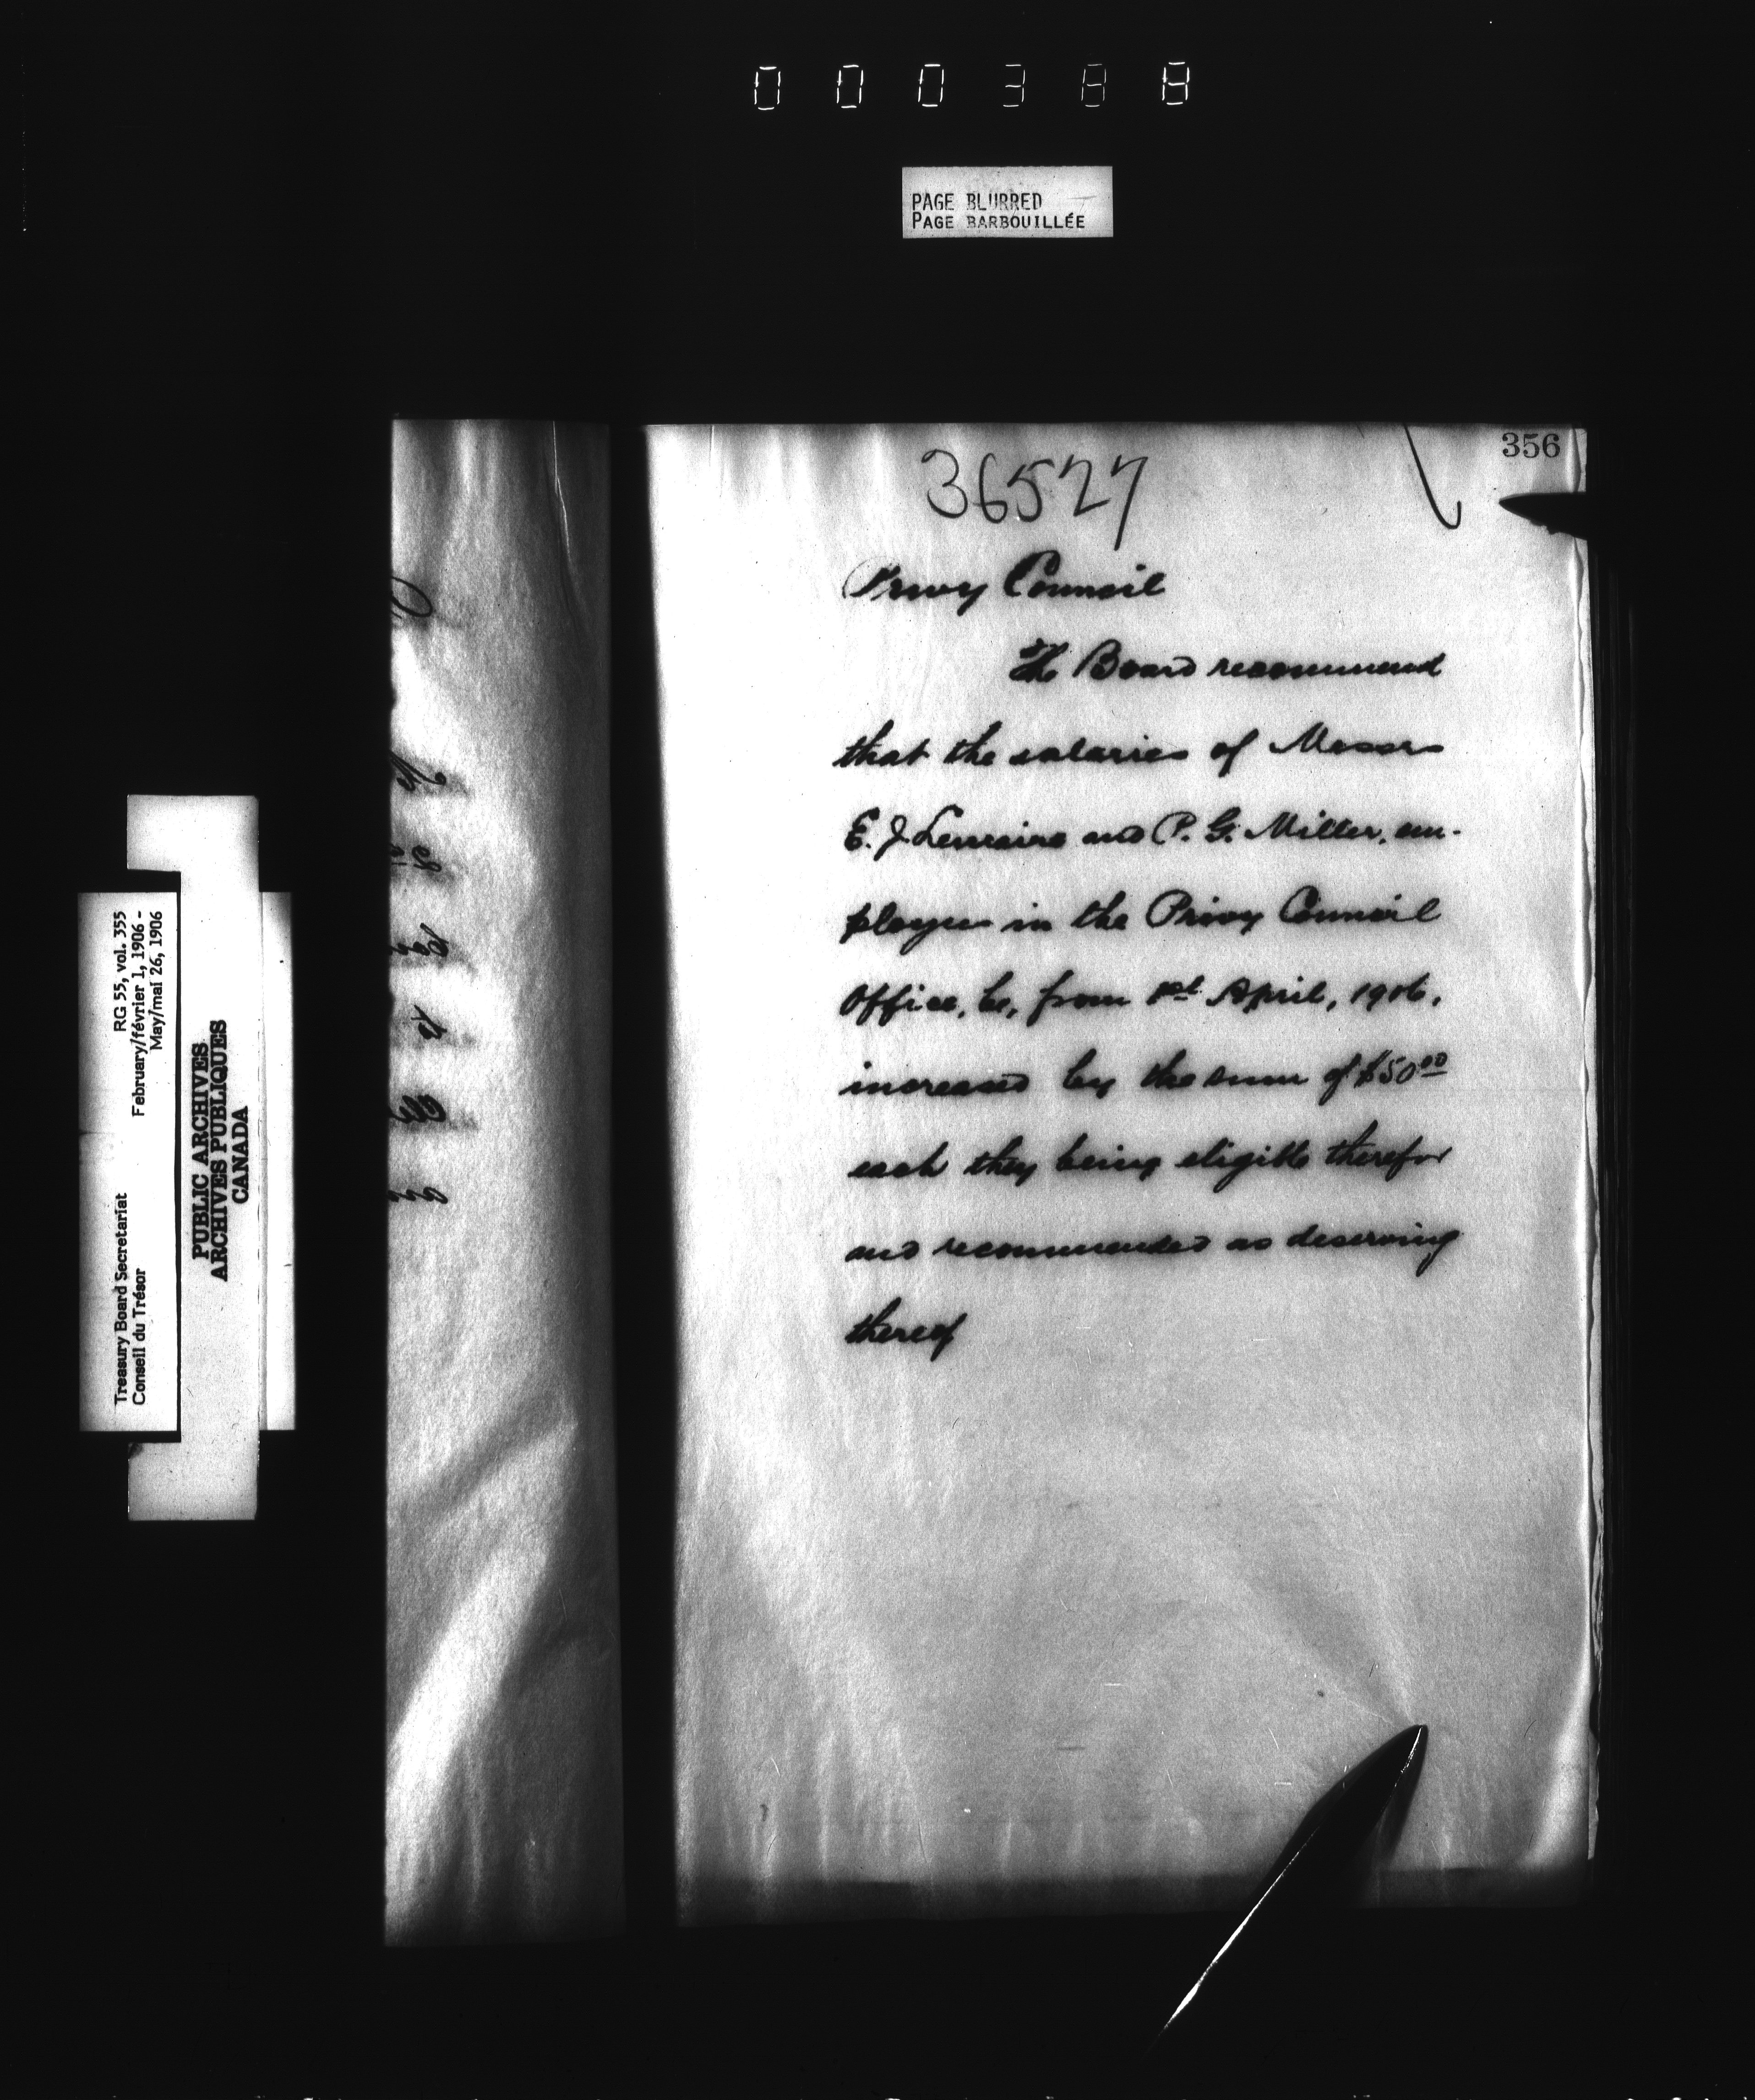 000388
PAGE BLURRED
PAGE BARBOUILLÉE
356
36527
Privy Council
The Board recommend
that the salaries of Messrs
E. J. Lemaire and P. G. Miller, em-
ployees in the Privy Council
Office, be, from 1st April, 1906,
increased by the sum of $50 00
each they being eligible therefor
and recommended as deserving
thereof
Treasury Board Secretariat RG 55, vol. 355
Conseil du Trésor February/février 1, 1906 -
May/mai 26, 1906
PUBLIC ARCHIVES
ARCHIVES PUBLIQUES
CANADA